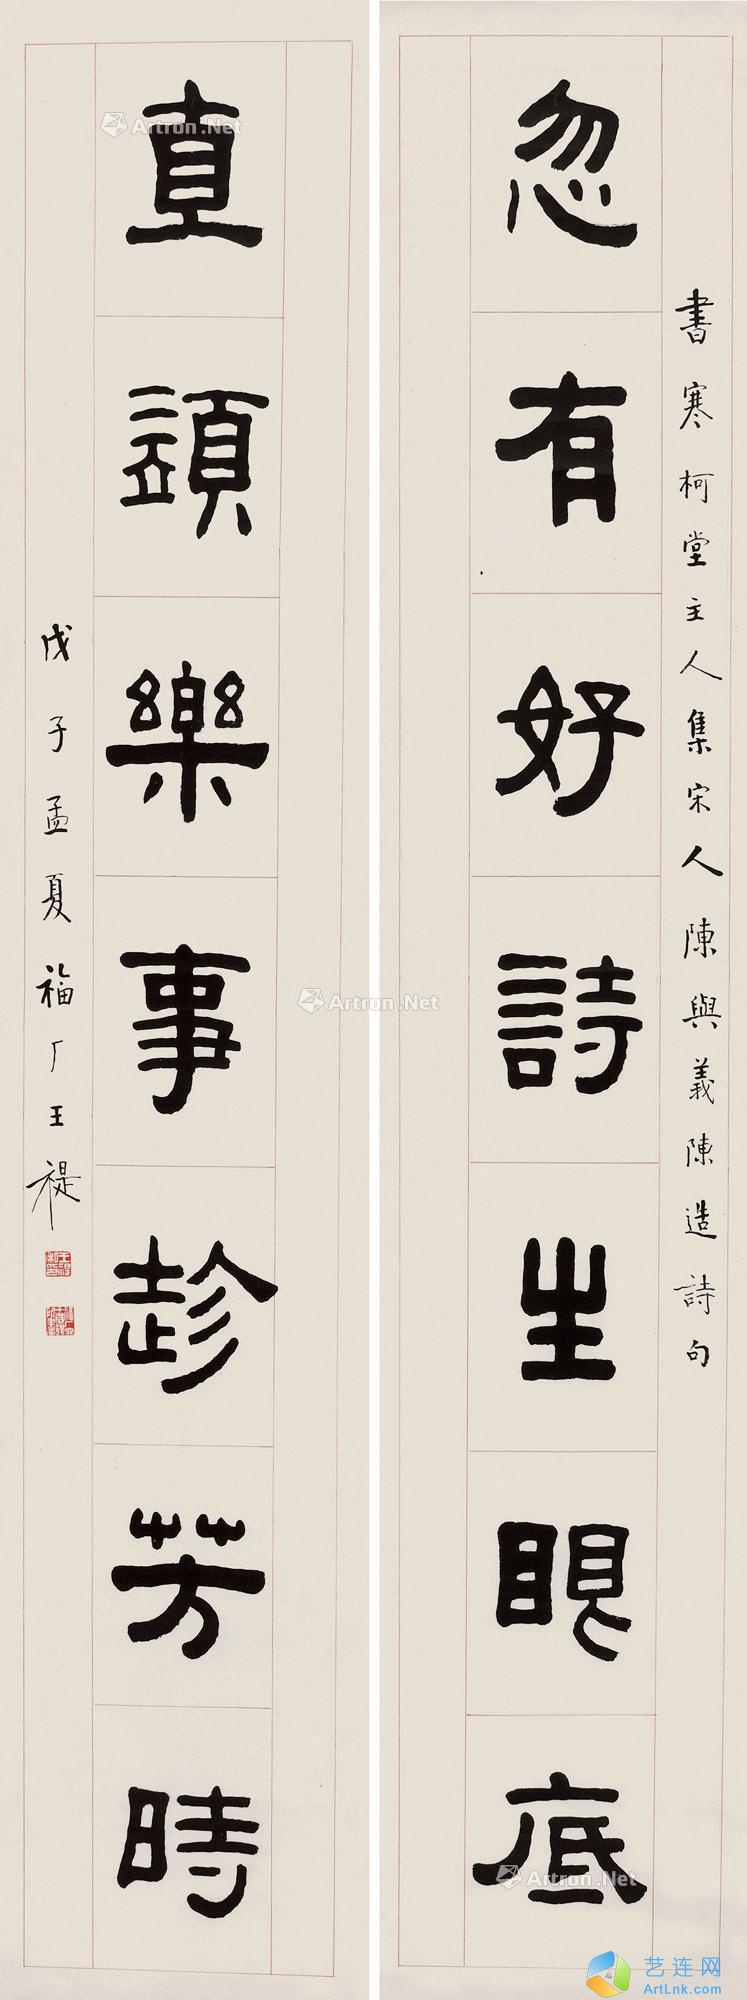 書寒柯堂主人集宋人陳與義陳造詩句
忽有好詩生眼底
直須樂事趁芳時
戊子孟夏福厂王禔
Artron.Net
Artron.Net
Artron.Net
Artron.Net
艺连网
ArtLnk.com